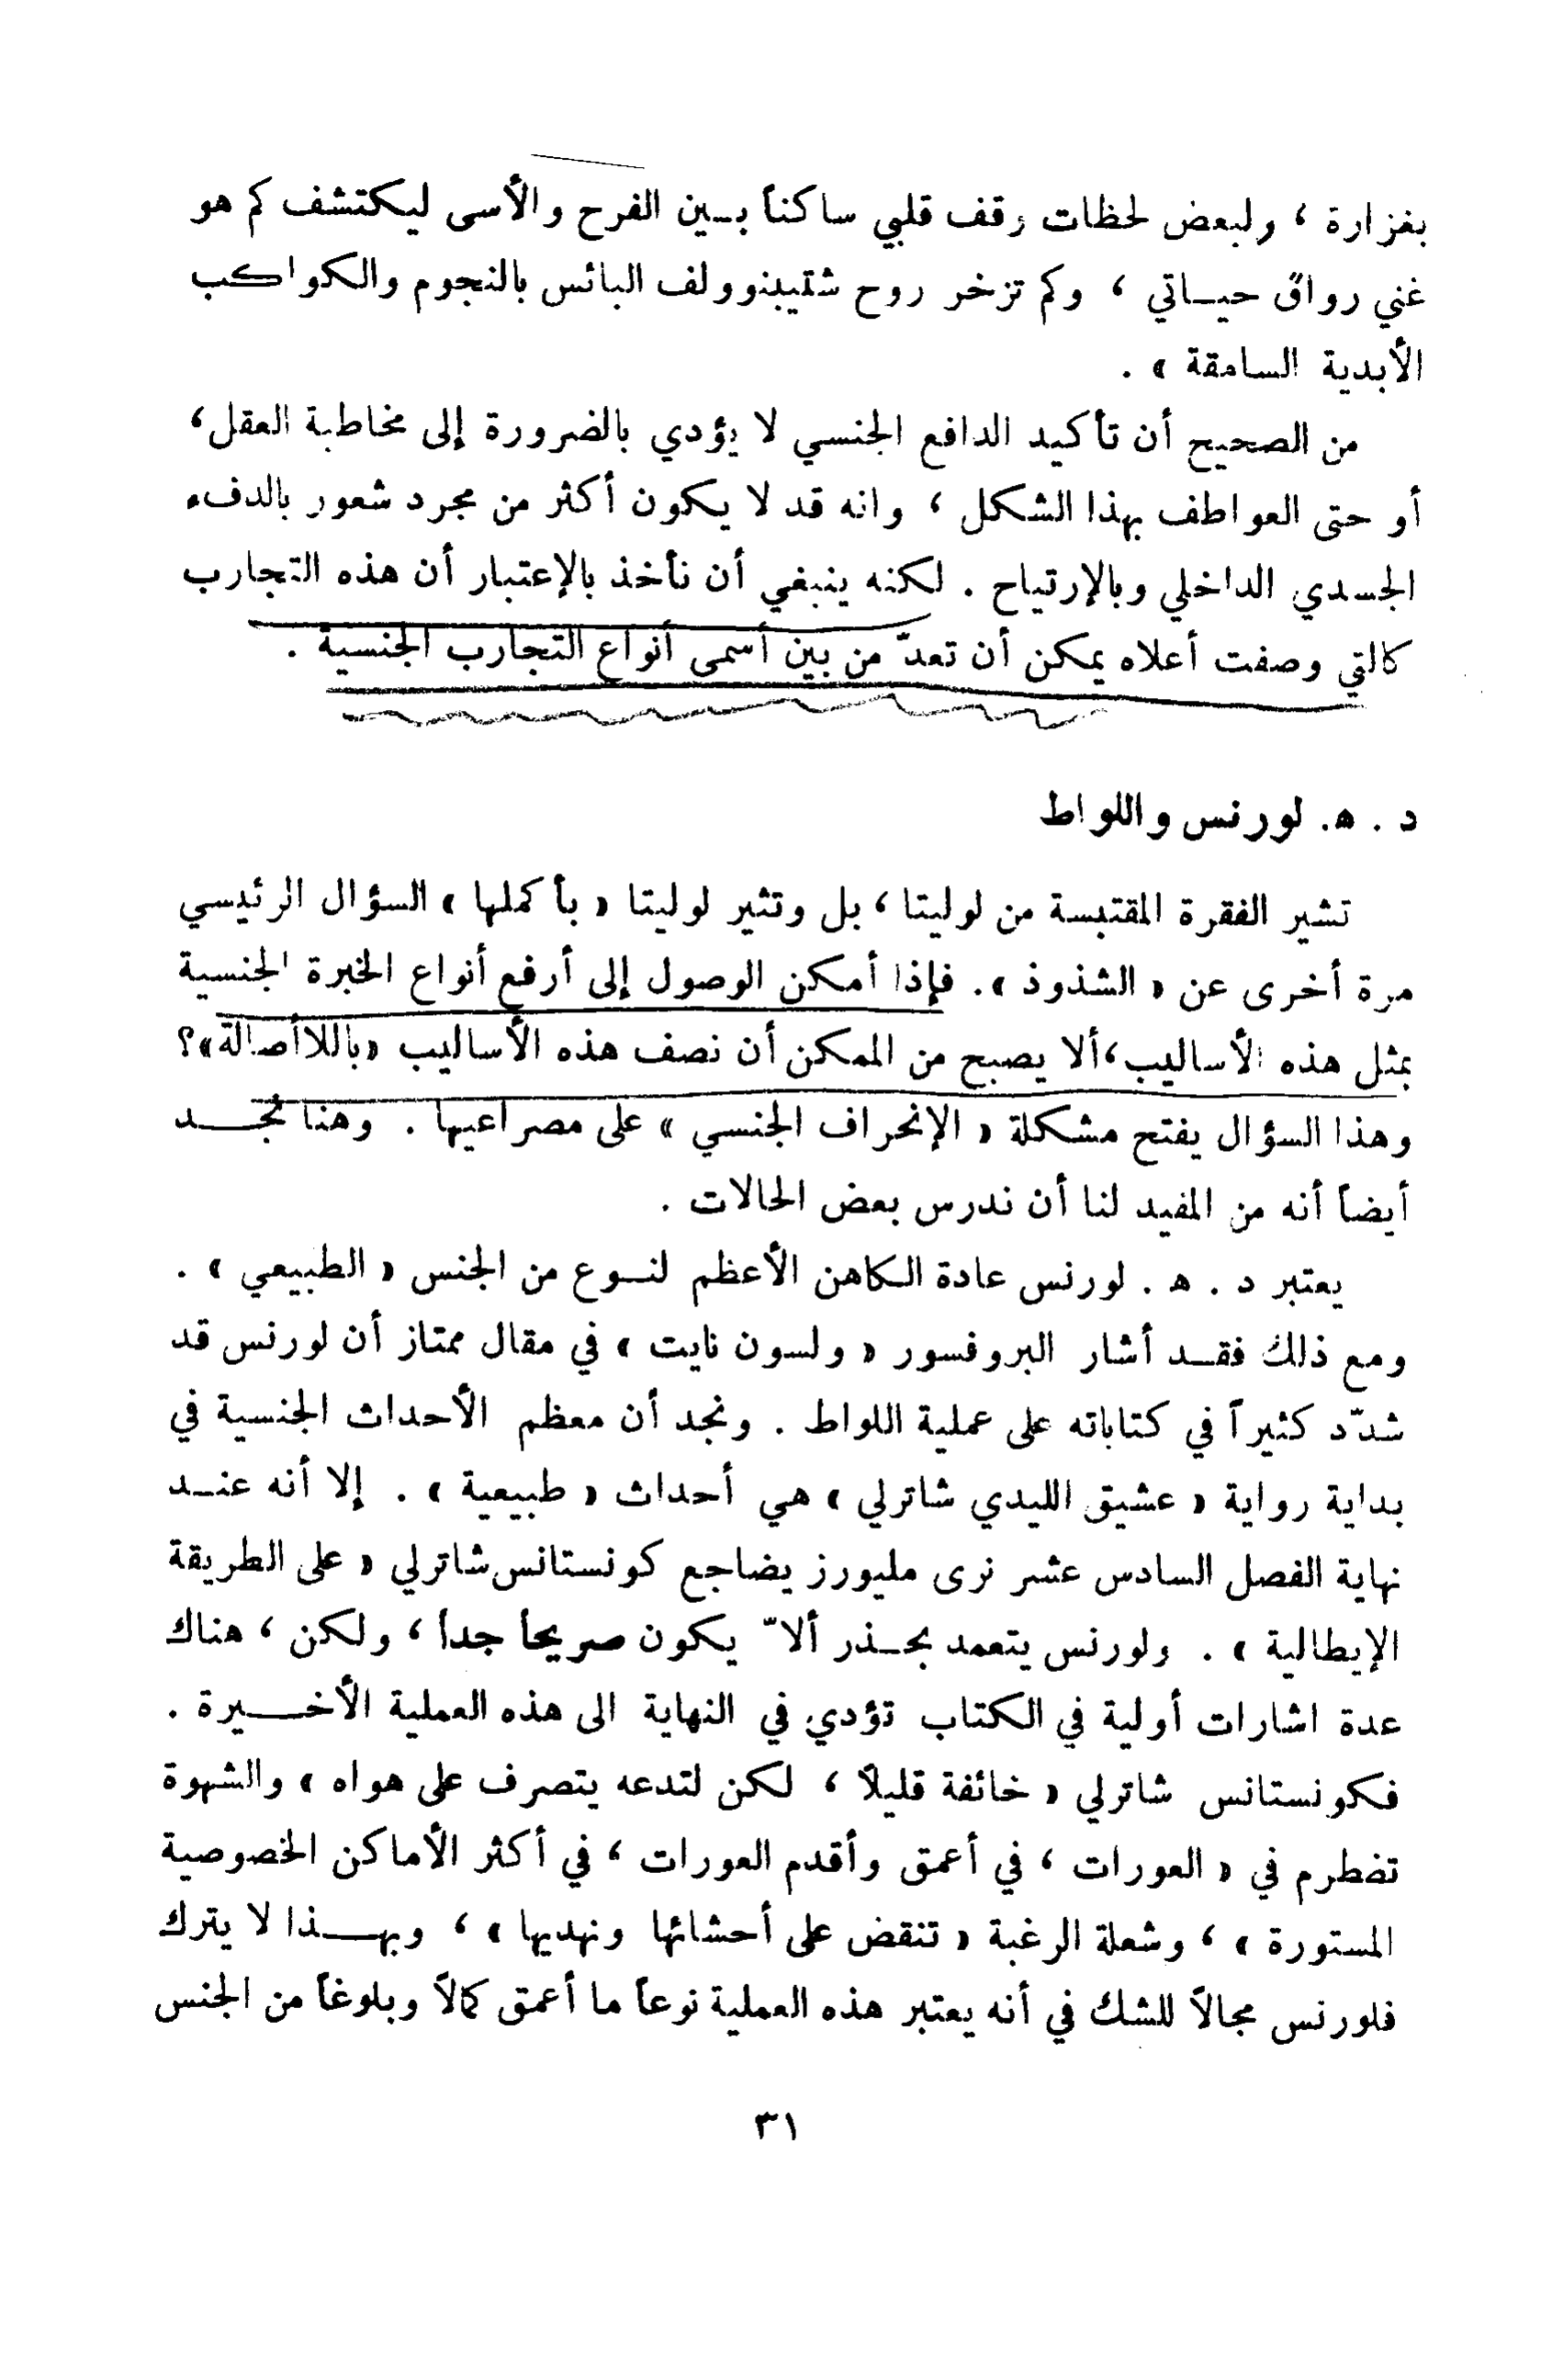 بغزارة ، ولبعض لحظات وقف قلبي ساكناً بـين الفرح والأسى ليكتشف كم هو
غني رواق حيـاتي ، وكم تزخر روح شتيبنوولف البائس بالنجوم والكواكب
الأبدية السامقة » .
من الصحيح أن تأكيد الدافع الجنسي لا يؤدي بالضرورة إلى مخاطبة العقل،
أو حتى العواطف بهذا الشكل ، وانه قد لا يكون أكثر من مجرد شعور بالدفء
الجسدي الداخلي وبالإرتياح . لكنه ينبغي أن نأخذ بالإعتبار أن هذه التجارب
كالتي وصفت أعلاه يمكن أن تعدّ من بين أسمى أنواع التجارب الجنسية .
د . ه . لورنس واللواط
تشير الفقرة المقتبسة من لوليتا ، بل وتثير لوليتا « بأكملها » السؤال الرئيسي
مرة أخرى عن « الشذوذ » . فإذا أمكن الوصول إلى أرفع أنواع الخبرة الجنسية
بمثل هذه الأساليب ، ألا يصبح من الممكن أن نصف هذه الأساليب «باللاأصالة»؟
وهذا السؤال يفتح مشكلة « الإنحراف الجنسي » على مصراعيها . وهنا نجـــد
أيضاً أنه من المفيد لنا أن ندرس بعض الحالات .
يعتبر د . ه . لورنس عادة الكاهن الأعظم لنـوع من الجنس « الطبيعي » .
ومع ذلك فقـد أشار البروفسور « ولسون نايت » في مقال ممتاز أن لورنس قد
شدّد كثيراً في كتاباته على عملية اللواط . ونجد أن معظم الأحداث الجنسية في
بداية رواية « عشيق الليدي شاترلي » هي أحداث « طبيعية » . إلا أنه عنـد
نهاية الفصل السادس عشر نرى مليورز يضاجع كونستانس شاترلي « على الطريقة
الإيطالية » . ولورنس يتعمد بحـذر ألاّ يكون صريحاً جداً ، ولكن ، هناك
عدة اشارات أولية في الكتاب تؤدي في النهاية الى هذه العملية الأخـــيرة .
فكونستانس شاترلي « خائفة قليلاً ، لكن لتدعه يتصرف على هواه » والشهوة
تضطرم في « العورات ، في أعمق وأقدم العورات ، في أكثر الأماكن الخصوصية
المستورة » ، وشعلة الرغبة « تنقض على أحشائها ونهديها » ، وبهـــذا لا يترك
فلورنس مجالاً للشك في أنه يعتبر هذه العملية نوعاً ما أعمق كمالاً وبلوغاً من الجنس
٣١